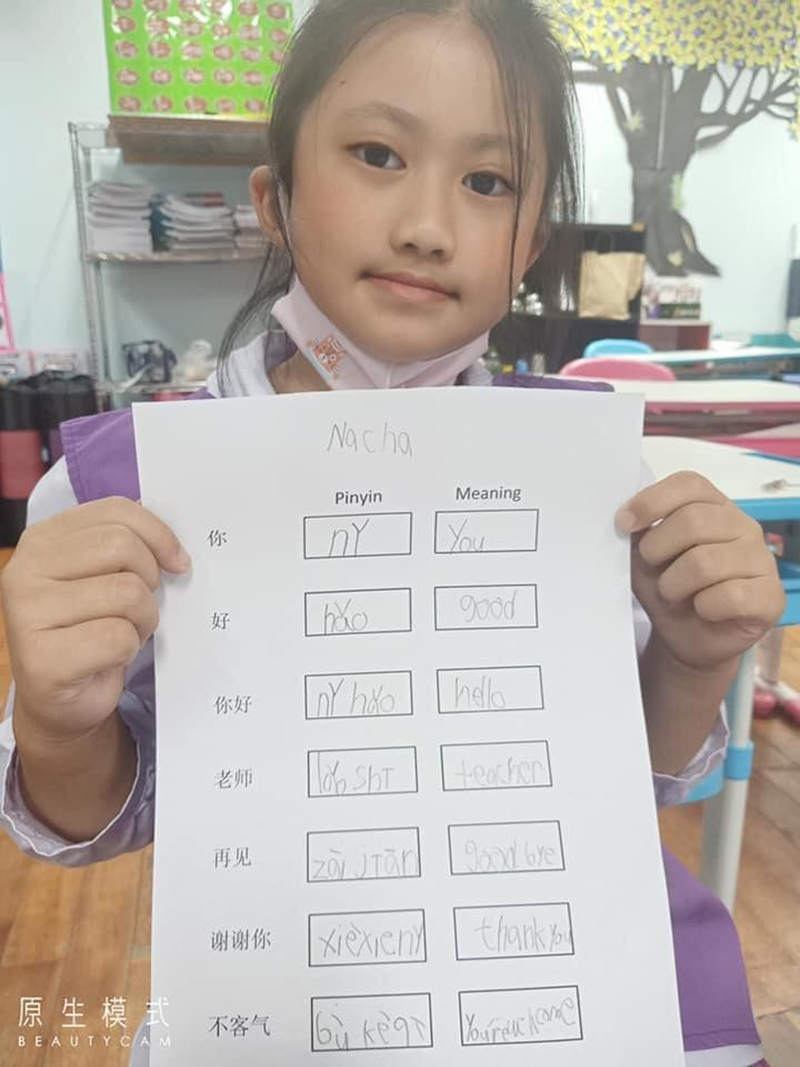 Nacha
Pinyin Meaning
你 nǐ you
好 hǎo good
你好 nǐ hǎo hello
老师 lǎo shī teacher
再见 zài jiàn good bye
谢谢你 xièxie nǐ thank you
不客气 bù kèqì
原生模式
BEAUTYCAM